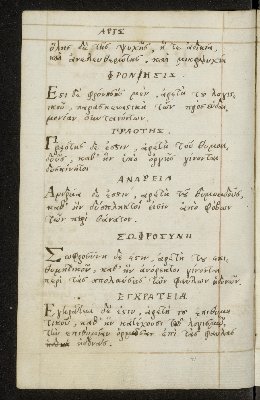 ΑΡΙΣ
ὅλης δὲ τῆς ψυχῆς, ἥ τε ἀδικία,
καὶ ἀνελευθεριότης, καὶ μικροψυχία
ΦΡΟΝΗΣΙΣ.
Εστι δὲ φρόνησις μὲν, ἀρετὴ τοῦ λογισ-
τικοῦ, παρασκευαστικὴ τῶν πρὸς εὐδαι-
μονίαν συντεινόντων.
ΠΡΑΟΤΗΣ.
Πραότης δέ ἐστιν, ἀρετὴ τοῦ θυμοει-
δοῦς, καθ' ἣν ὑπὸ ὀργῆς γίνονται
δυσκίνητοι
ΑΝΔΡΕΙΑ
Ανδρεία δέ ἐστιν, ἀρετὴ τοῦ θυμοειδοῦς,
καθ' ἣν δυσέκπληκτοί εἰσιν ὑπὸ φόβων
τῶν περὶ θάνατον.
ΣΩΦΡΟΣΥΝΗ
Σωφροσύνη δέ ἐστιν, ἀρετὴ τοῦ ἐπι-
θυμητικοῦ, καθ' ἣν ἀνόρεκτοι γίνονται
περὶ τὰς ἀπολαύσεις τῶν φαύλων ἡδονῶν.
ΕΓΚΡΑΤΕΙΑ.
Εγκράτεια δέ ἐστιν, ἀρετὴ τοῦ ἐπιθυμη-
τικοῦ, καθ' ἣν κατέχουσι τῷ λογισμῷ,
τὴν ἐπιθυμίαν ὁρμῶσαν ἐπὶ τὰς φαύλας
ἡδονάς.